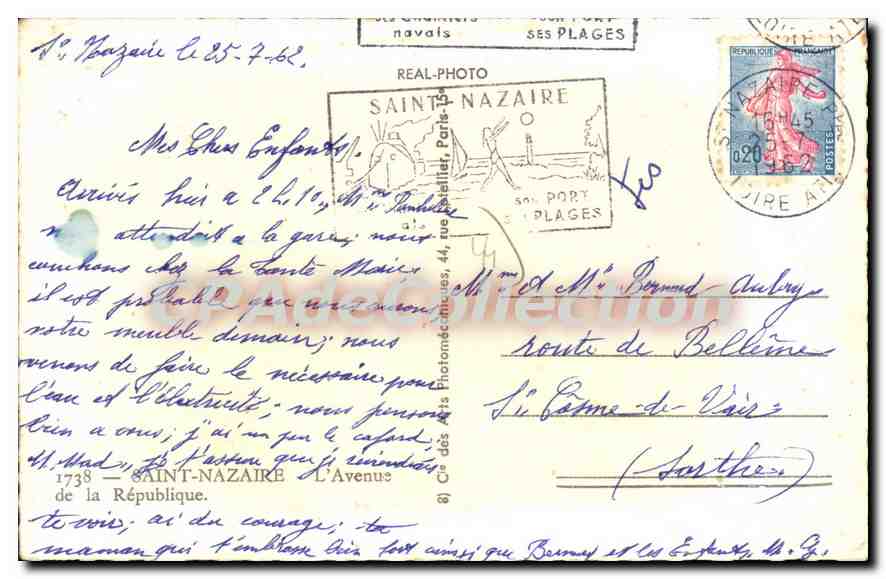 SES CHANTIERS SON PORT
navals SES PLAGES
St Nazaire le 25-7-62.
REAL-PHOTO
RÉPUBLIQUE FRANÇAISE
0,20
POSTES
ST NAZAIRE
16H45
25-7
1962
LOIRE ATL
SAINT-NAZAIRE
SON PORT
SES PLAGES
Mes Chers Enfants.
Arrivés hier a 2h.10, Mme
attendait a la gare; nous
couchons chez la Tante Marie
il est probable que nous aurons
notre meuble demain; nous
venons de faire le nécessaire pour
l'eau et l'électricité, nous pensons
bien a vous; j'ai un peu le cafard,
M. Mad, je t'assure que je reviendrais
te voir; ai du courage; ta
maman qui t'embrasse bien fort ainsi que Bernard et les Enfants, M. G.
Mme & Mr Bernard Aubry
route de Bellême
St Cosme-de-Vair
(Sarthe)
1738 — SAINT-NAZAIRE L'Avenue
de la République.
8) Cie des Arts Photomécaniques, 44, rue Letellier, Paris-15e
CPAdeCollection